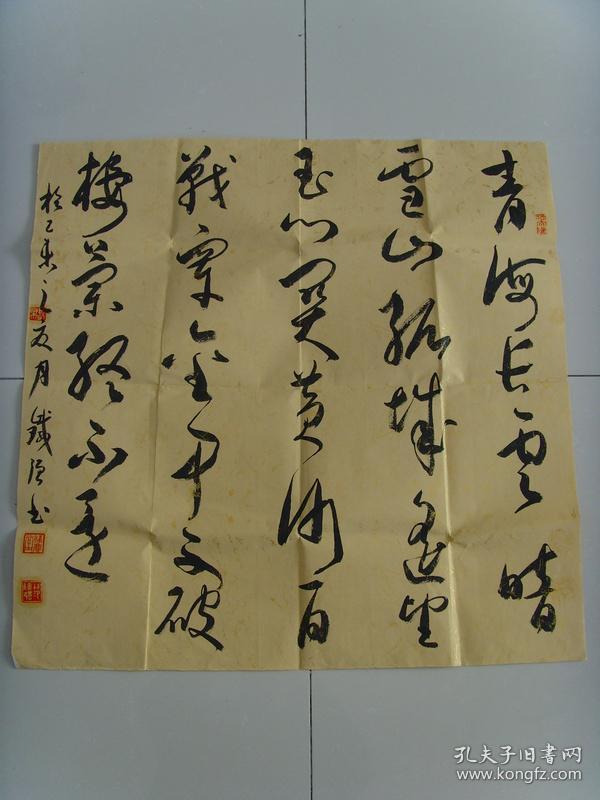 青海长雲暗
雪山孤城遥望
玉门関黄沙百
戰穿金甲不破
楼蘭終不還
於乙未之夏月鐵强书
孔夫子旧書网
www.kongfz.com